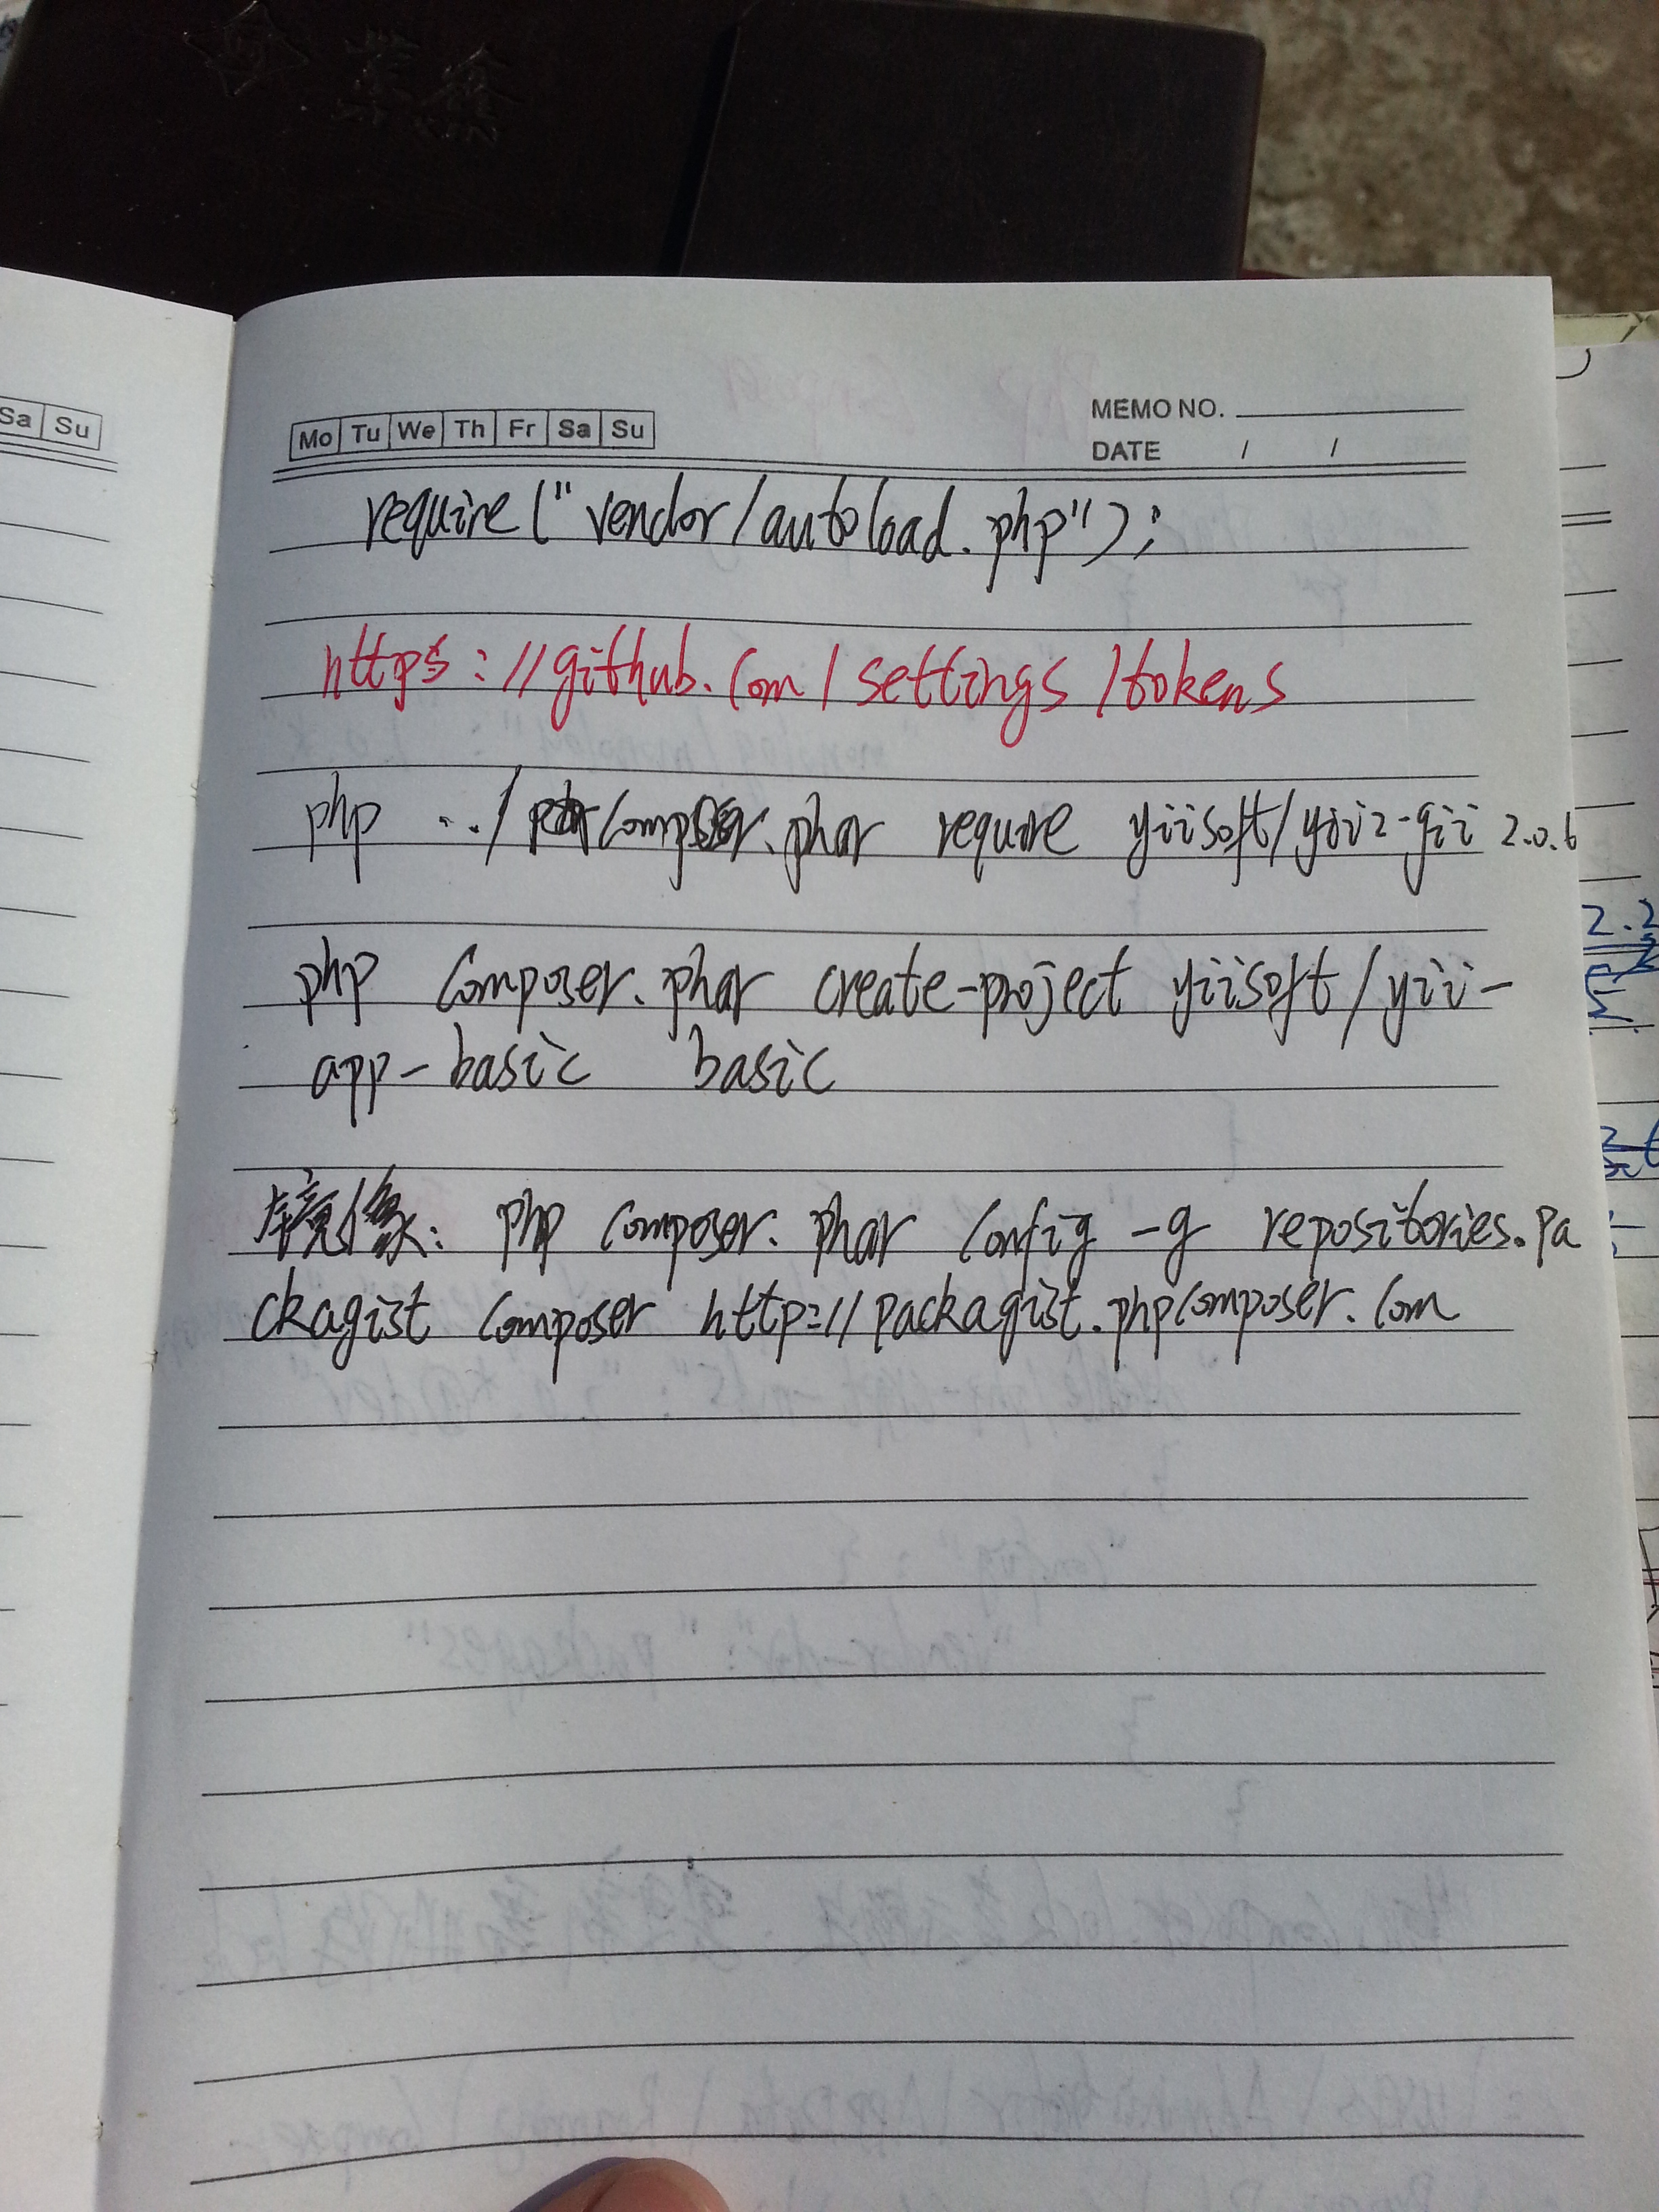 Sa Su
Mo Tu We Th Fr Sa Su
MEMO NO.
DATE / /
require("vendor/autoload.php");
https://github.com/settings/tokens
php ../composer.phar require yiisoft/yii2-gii 2.0.6
php composer.phar create-project yiisoft/yii-
app-basic basic
镜像: php composer.phar config -g repositories.pa
ckagist composer http://packagist.phpcomposer.com
2.2